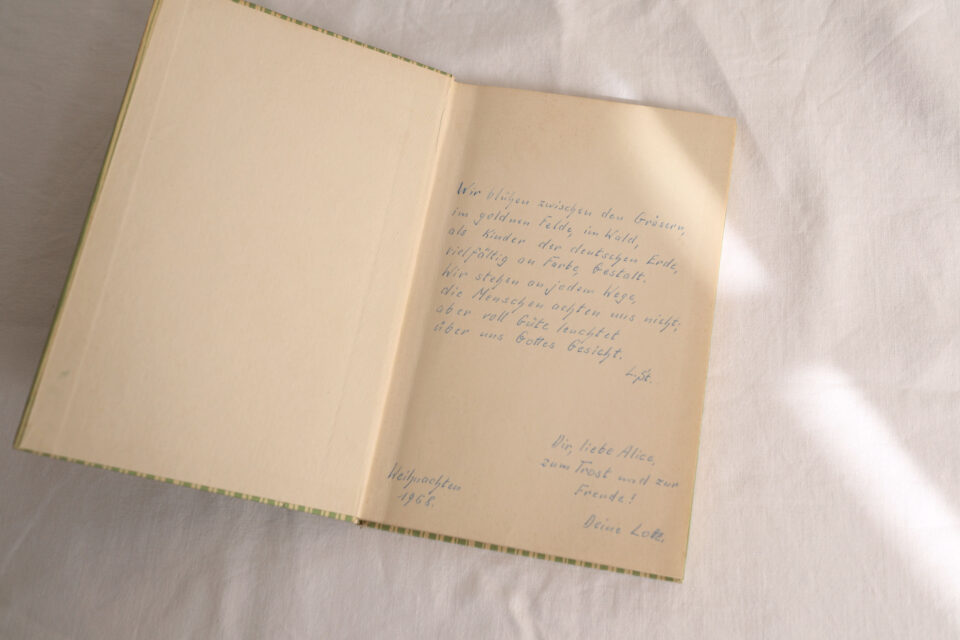 Wir blühen zwischen den Gräsern,
im goldnen Felde, im Wald,
als Kinder der deutschen Erde,
vielfältig an Farbe, Gestalt.
Wir stehen an jedem Wege,
die Menschen achten uns nicht;
aber voll Güte leuchtet
über uns Gottes Gesicht.
L. St.
Dir, liebe Alice,
zum Trost und zur
Freude!
Deine Lotte.
Weihnachten
1968.